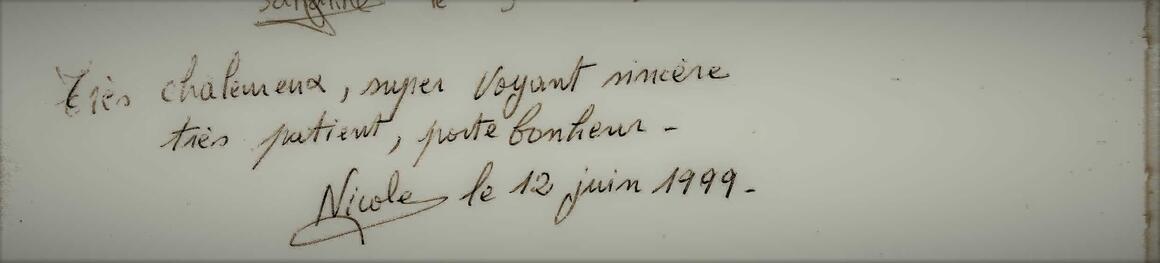 le
Très chaleureux, super voyant sincère
très patient, porte bonheur -
Nicole le 12 juin 1999.